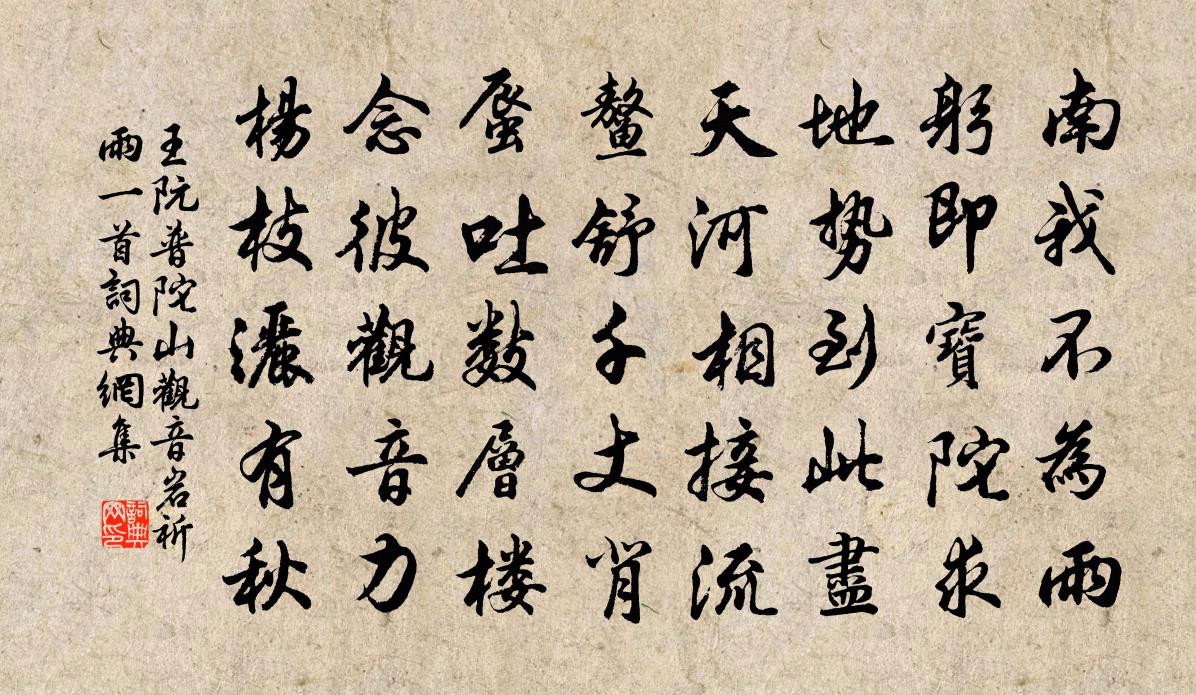 南我不為雨
躬即寶陀求
地势到此盡
天河相接流
鰲舒千丈背
蜃吐數層楼
念彼觀音力
楊枝灑有秋
王阮普陀山觀音岩祈
雨一首詞典網集
詞典網印